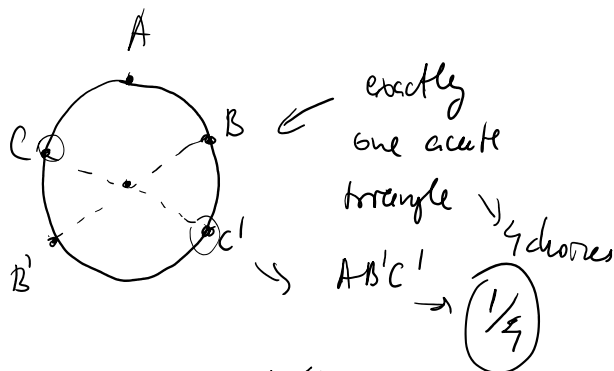 A
exactly
B
one acute
C
triangle
4 choices
C'
B'
AB'C'
1/4